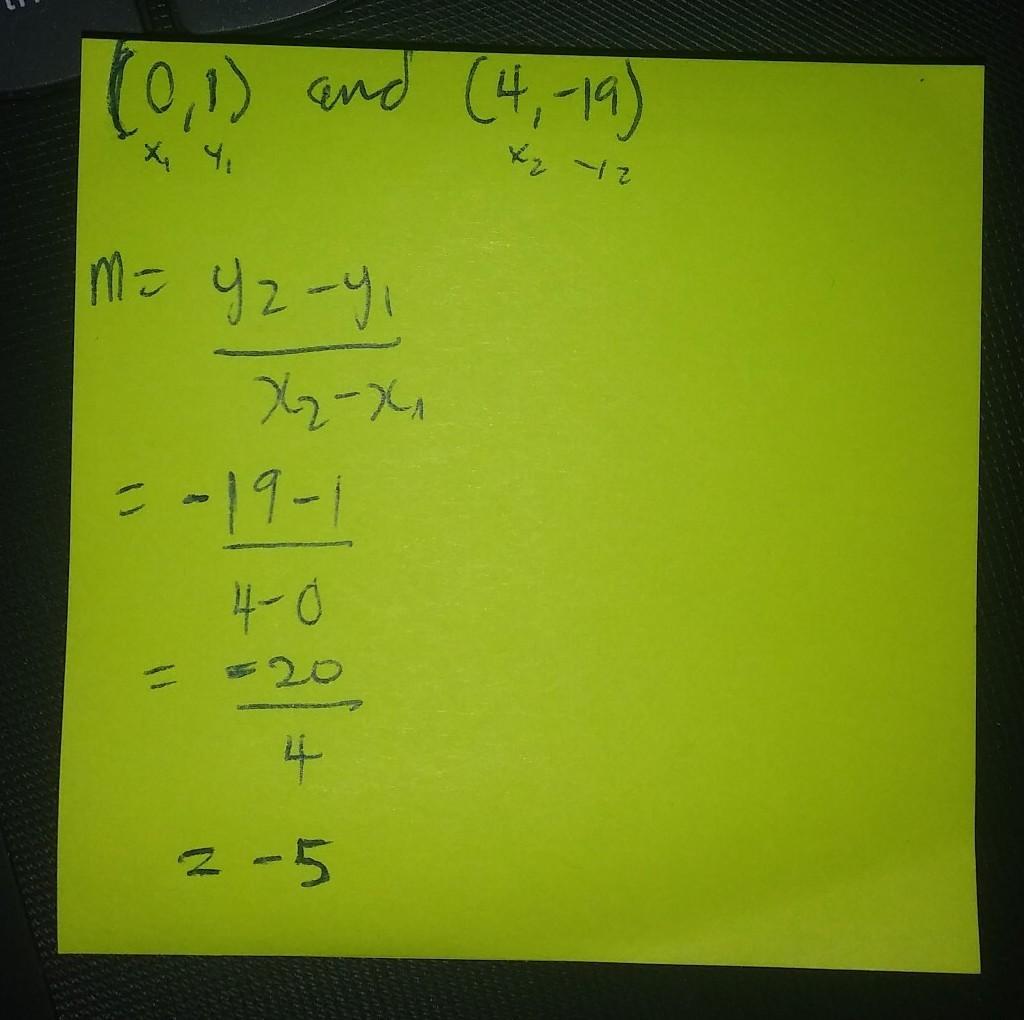 (0,1) and (4,-19)
x₁ y₁ x₂ y₂
m= y₂-y₁
x₂-x₁
= -19-1
4-0
= -20
4
= -5